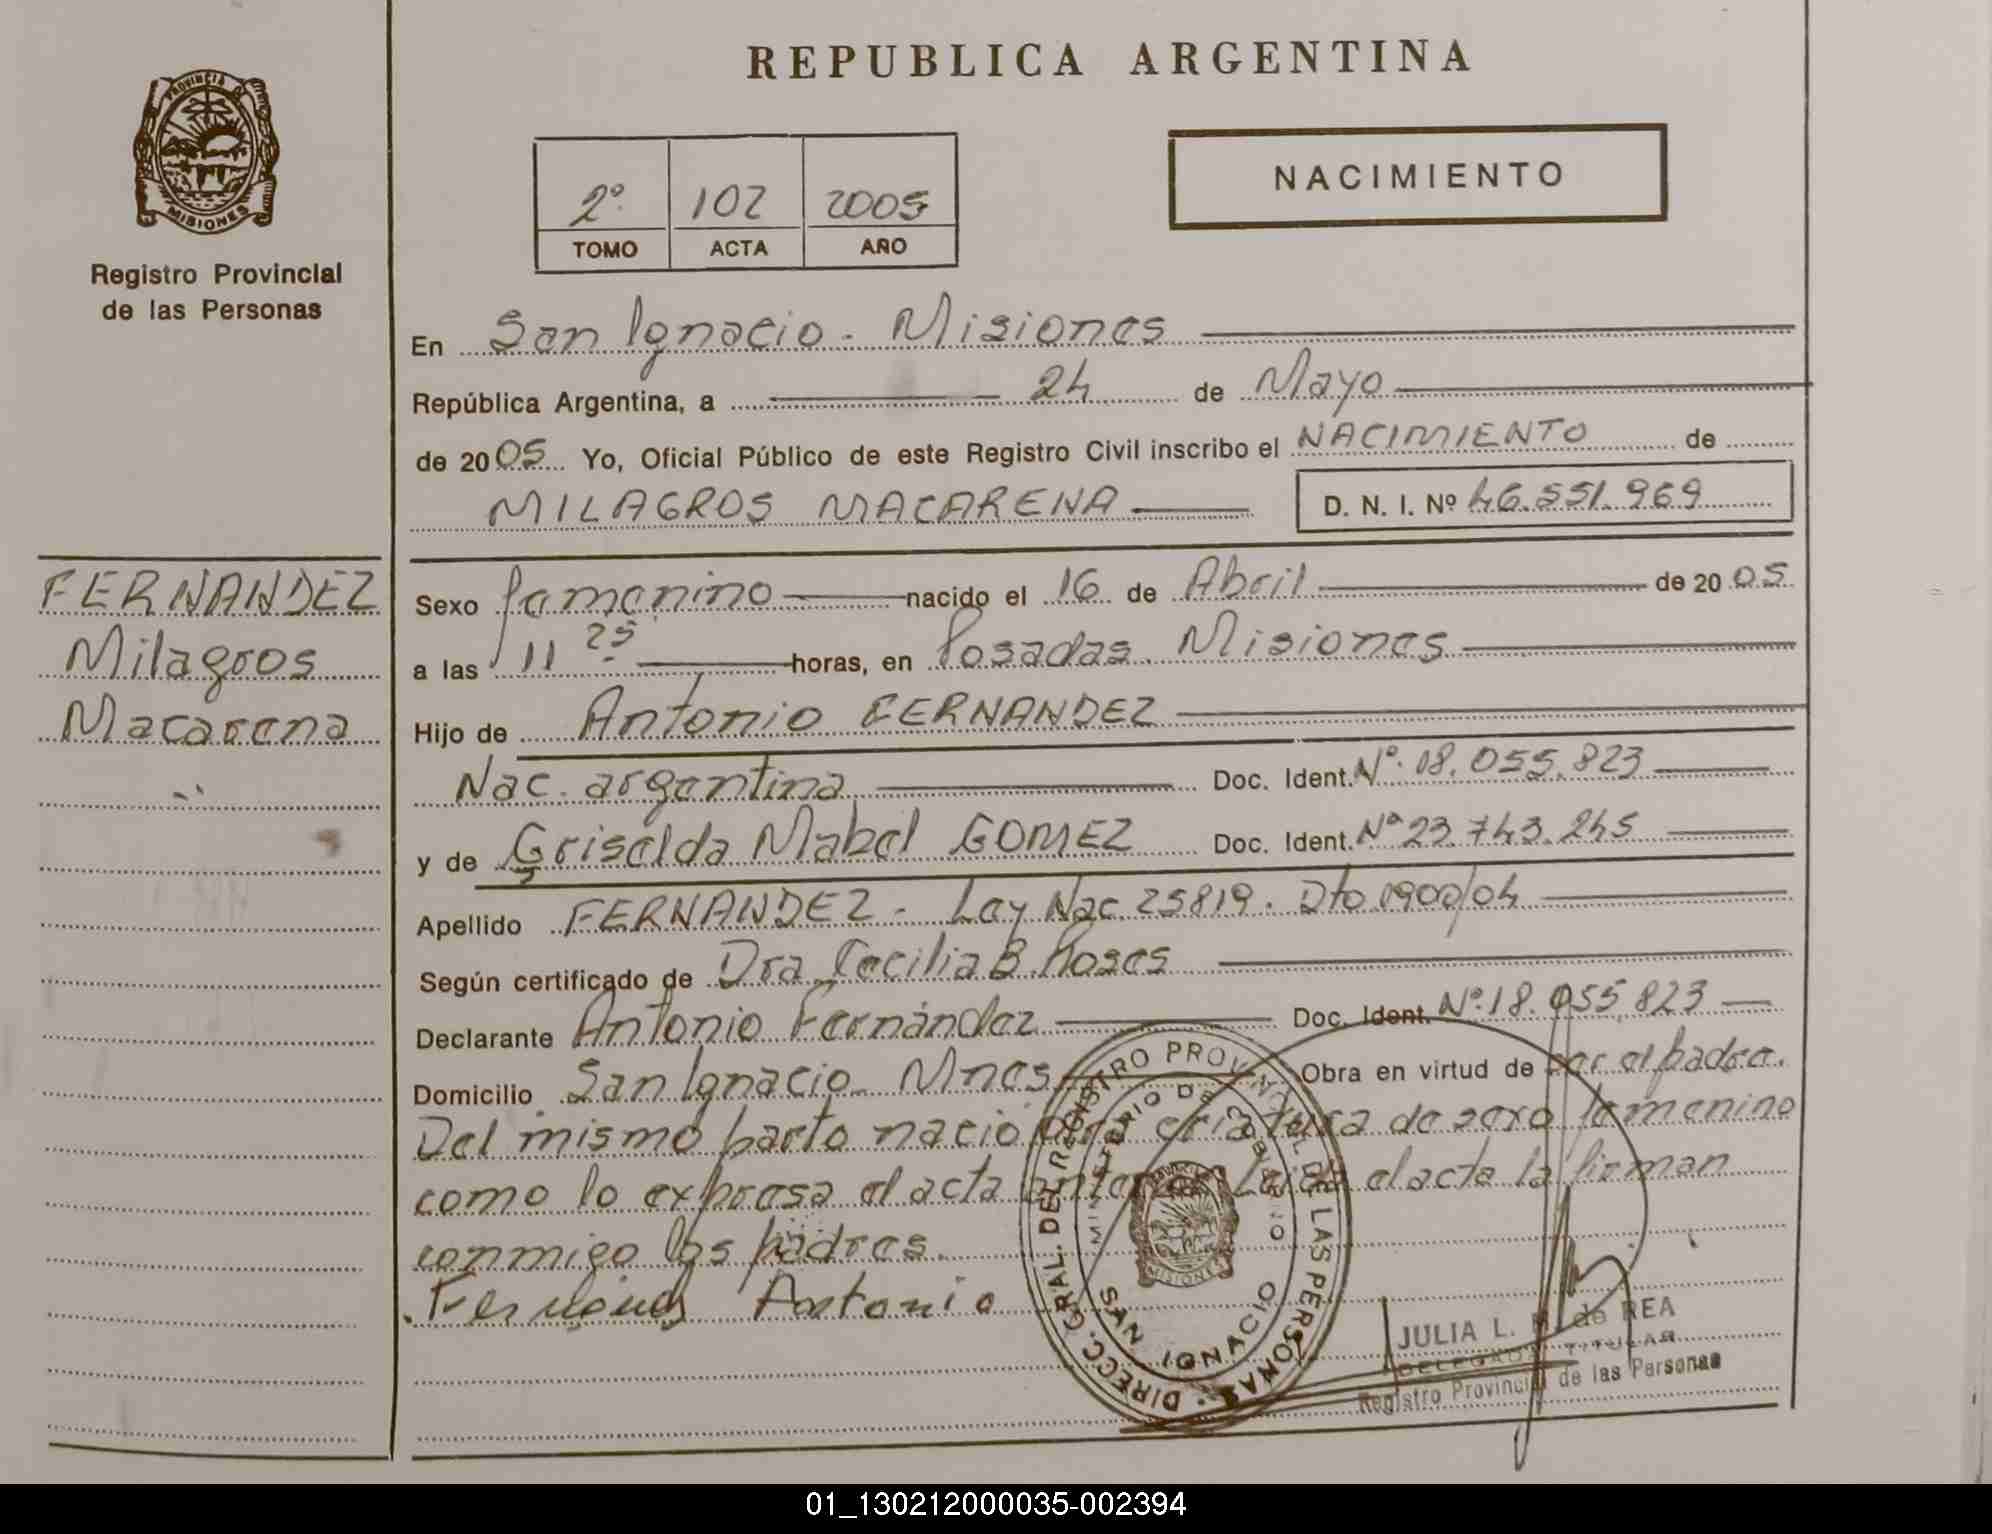 REPUBLICA ARGENTINA
PROVINCIA D
MISIONES
Registro Provincial
de las Personas
NACIMIENTO
2º 102 2005
TOMO ACTA AÑO
En San Ignacio - Misiones
República Argentina, a 24 de Mayo
de 2005 Yo, Oficial Público de este Registro Civil inscribo el NACIMIENTO de
MILAGROS MACARENA D. N. I. Nº 46.551.969
FERNANDEZ
Milagros
Macarena
Sexo femenino nacido el 16 de Abril de 2005
a las 11 25 horas, en Posadas. Misiones
Hijo de Antonio FERNANDEZ
Nac. argentina Doc. Ident. Nº 18.055.823
y de Griselda Mabel GOMEZ Doc. Ident. Nº 23.743.245
Apellido FERNANDEZ - Ley Nac. 25819. Dto 1900/04
Según certificado de Dra Cecilia B. Roses
Declarante Antonio Fernández Doc. Ident. Nº 18.055.823
Domicilio San Ignacio Mnes Obra en virtud de ser el padre.
Del mismo parto nació otra criatura de sexo femenino
como lo expresa el acta anterior Leída el acta la firman
conmigo los padres.
Fernandez Antonio
DIRECC. GRAL. DEL REGISTRO PROVINCIAL DE LAS PERSONAS
MINISTERIO DE GOBIERNO
SAN IGNACIO
MISIONES
JULIA L. de REA
DELEGADA TITULAR
Registro Provincial de las Personas
01_130212000035-002394